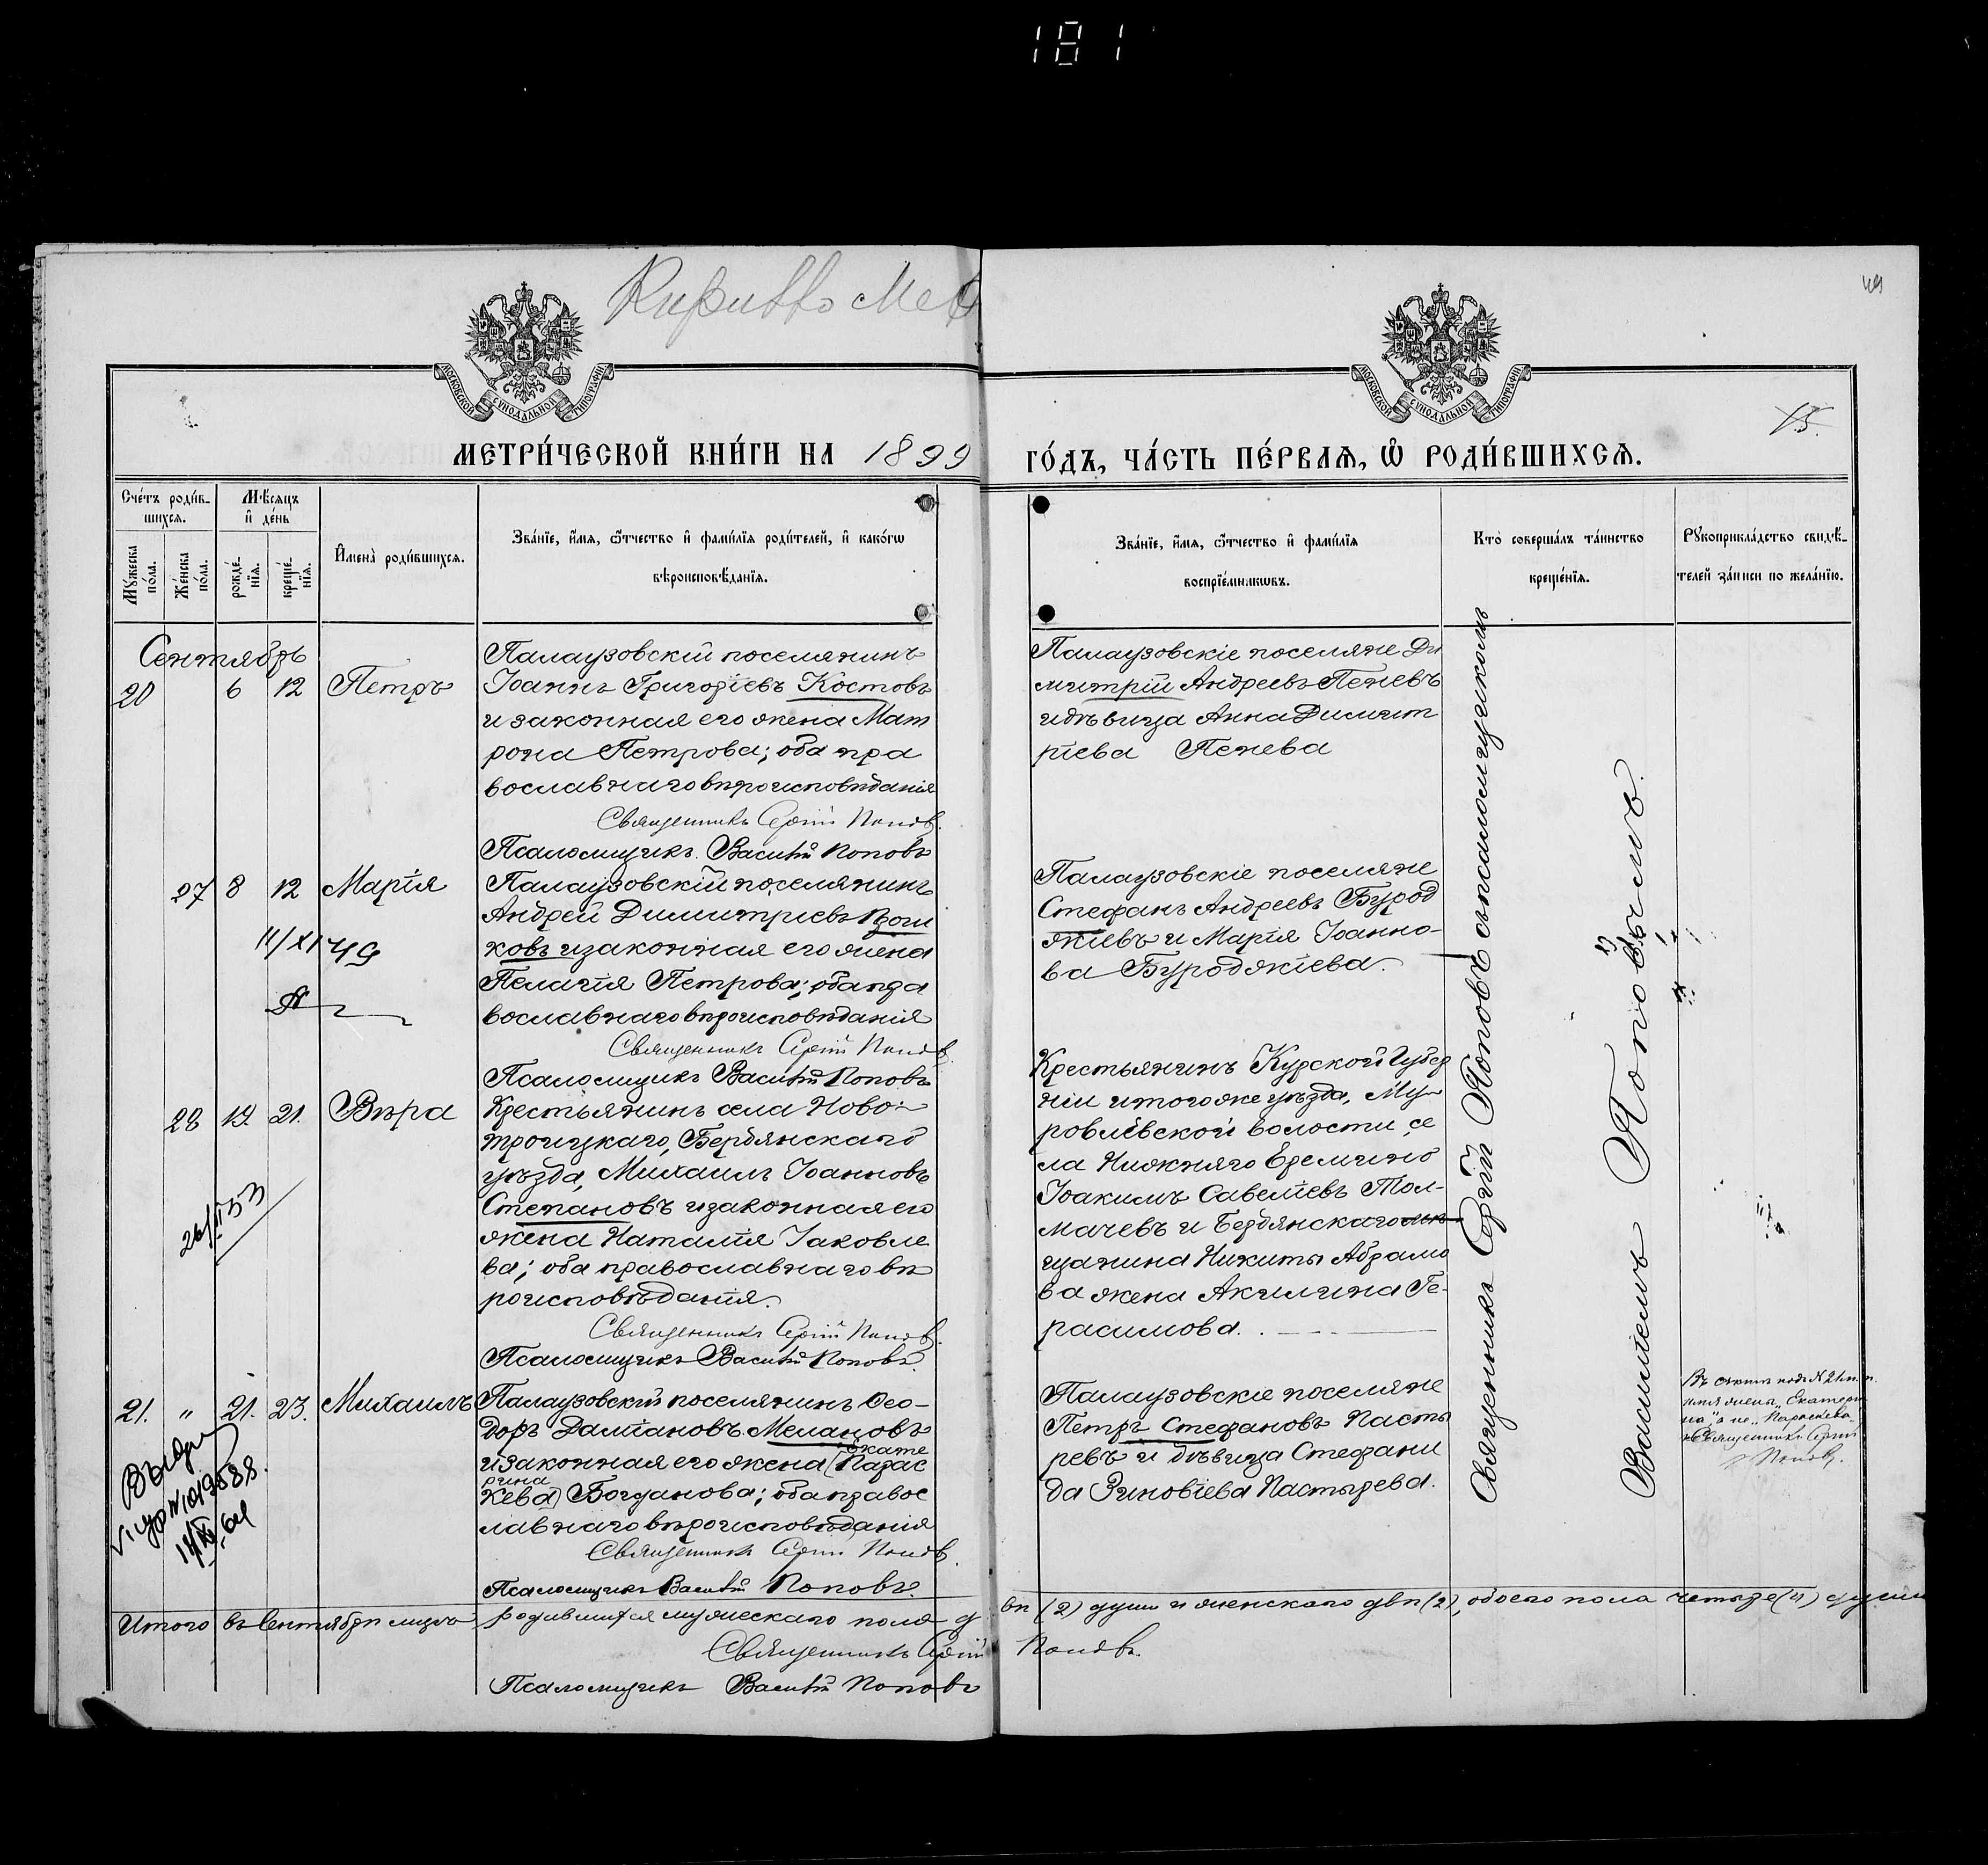 181
49
15.
МОСКОВСКОЙ СѴНОДАЛЬНОЙ ТИПОГРАФІИ
МОСКОВСКОЙ СѴНОДАЛЬНОЙ ТИПОГРАФІИ
МЕТРИ́ЧЕСКОЙ КНИ́ГИ НА 1899
ГО́ДЪ, ЧА́СТЬ ПЕ́РВАѦ, Ѽ РОДИ́ВШИХСѦ.
Сче́тъ роди́в-
шихсѧ.
Мѣ́сѧцъ
и҆ де́нь
Мꙋ́жеска
по́ла.
Же́нска
по́ла.
рожде́-
нїѧ.
креще́-
нїѧ.
И҆мена̀ роди́вшихсѧ.
Зва́нїе, и҆́мѧ, ѻ҆́тчество и҆ фами́лїѧ роди́телей, и҆ како́гѡ
вѣроисповѣ́данїѧ.
Зва́нїе, и҆́мѧ, ѻ҆́тчество и҆ фами́лїѧ
воспрїе́мникѡвъ.
Кто̀ соверша́лъ та́инство
креще́нїѧ.
Рꙋкоприкла́дство свидѣ́-
телей за́писи по жела́нїю.
Сентябрь
20 6 12 Петръ
Палаузовскій поселянинъ
Іоаннъ Григоріевъ Костовъ
и законная его жена Мат
рона Петрова; оба пра
вославнаго вѣроисповѣданія
Священникъ Сергій Поповъ.
Псаломщикъ Василій Поповъ
Палаузовскіе поселяне Ди
митрій Андреевъ Пеневъ
и дѣвица Анна Димит
ріева Пенева
27 8 12 Марія
11/XI 49
Палаузовскій поселянинъ
Андрей Димитріевъ
ковъ и законная его жена
Пелагія Петрова; оба пра
вославнаго вѣроисповѣданія
Священникъ Сергій Поповъ.
Псаломщикъ Василій Поповъ
Палаузовскіе поселяне
Стефанъ Андреевъ Бурод
жіевъ и Марія Іоанно-
ва Буроджіева.
28 19. 21. Вѣра
Крестьянинъ села Ново-
троицкаго, Бердянскаго
уѣзда, Михаилъ Іоанновъ
Степановъ и законная его
жена Наталія Іаковле
ва; оба православнаго вѣ
роисповѣданія.
Священникъ Сергій Поповъ.
Псаломщикъ Василій Поповъ.
Крестьянинъ Курской Губер
ніи и того же уѣзда, Му
ровлевской волости, се
ла Нижняго Еремино
Іоакимъ Савеліевъ Тол-
мачевъ и Бердянскаго мѣ
щанина Никиты Абрамо
ва жена Акилина Ге-
расимова.
21. " 21. 23. Михаилъ
Палаузовскій поселянинъ Ѳео-
доръ Даміановъ Мелановъ
и законная его жена (Парас
Екате
рина
кева) Богданова; оба правос
лавнаго вѣроисповѣданія
Священникъ Сергій Поповъ.
Псаломщикъ Василій Поповъ.
Палаузовскіе поселяне
Петръ Стефановъ Пасты
ревъ и дѣвица Стефани
да Зиновіева Пастырева.
Священникъ Сергій Поповъ съ псаломщикомъ
Василіемъ Поповымъ.
имя жены "Екатери
на", а не "Параскева".
Священникъ Сергій
Поповъ.
Итого въ Сентябрѣ мѣсяцѣ родившихся мужескаго пола д
вѣ (2) души и женскаго двѣ (2), обоего пола четыре (4) души
Священникъ Сергій Поповъ.
Псаломщикъ Василій Поповъ